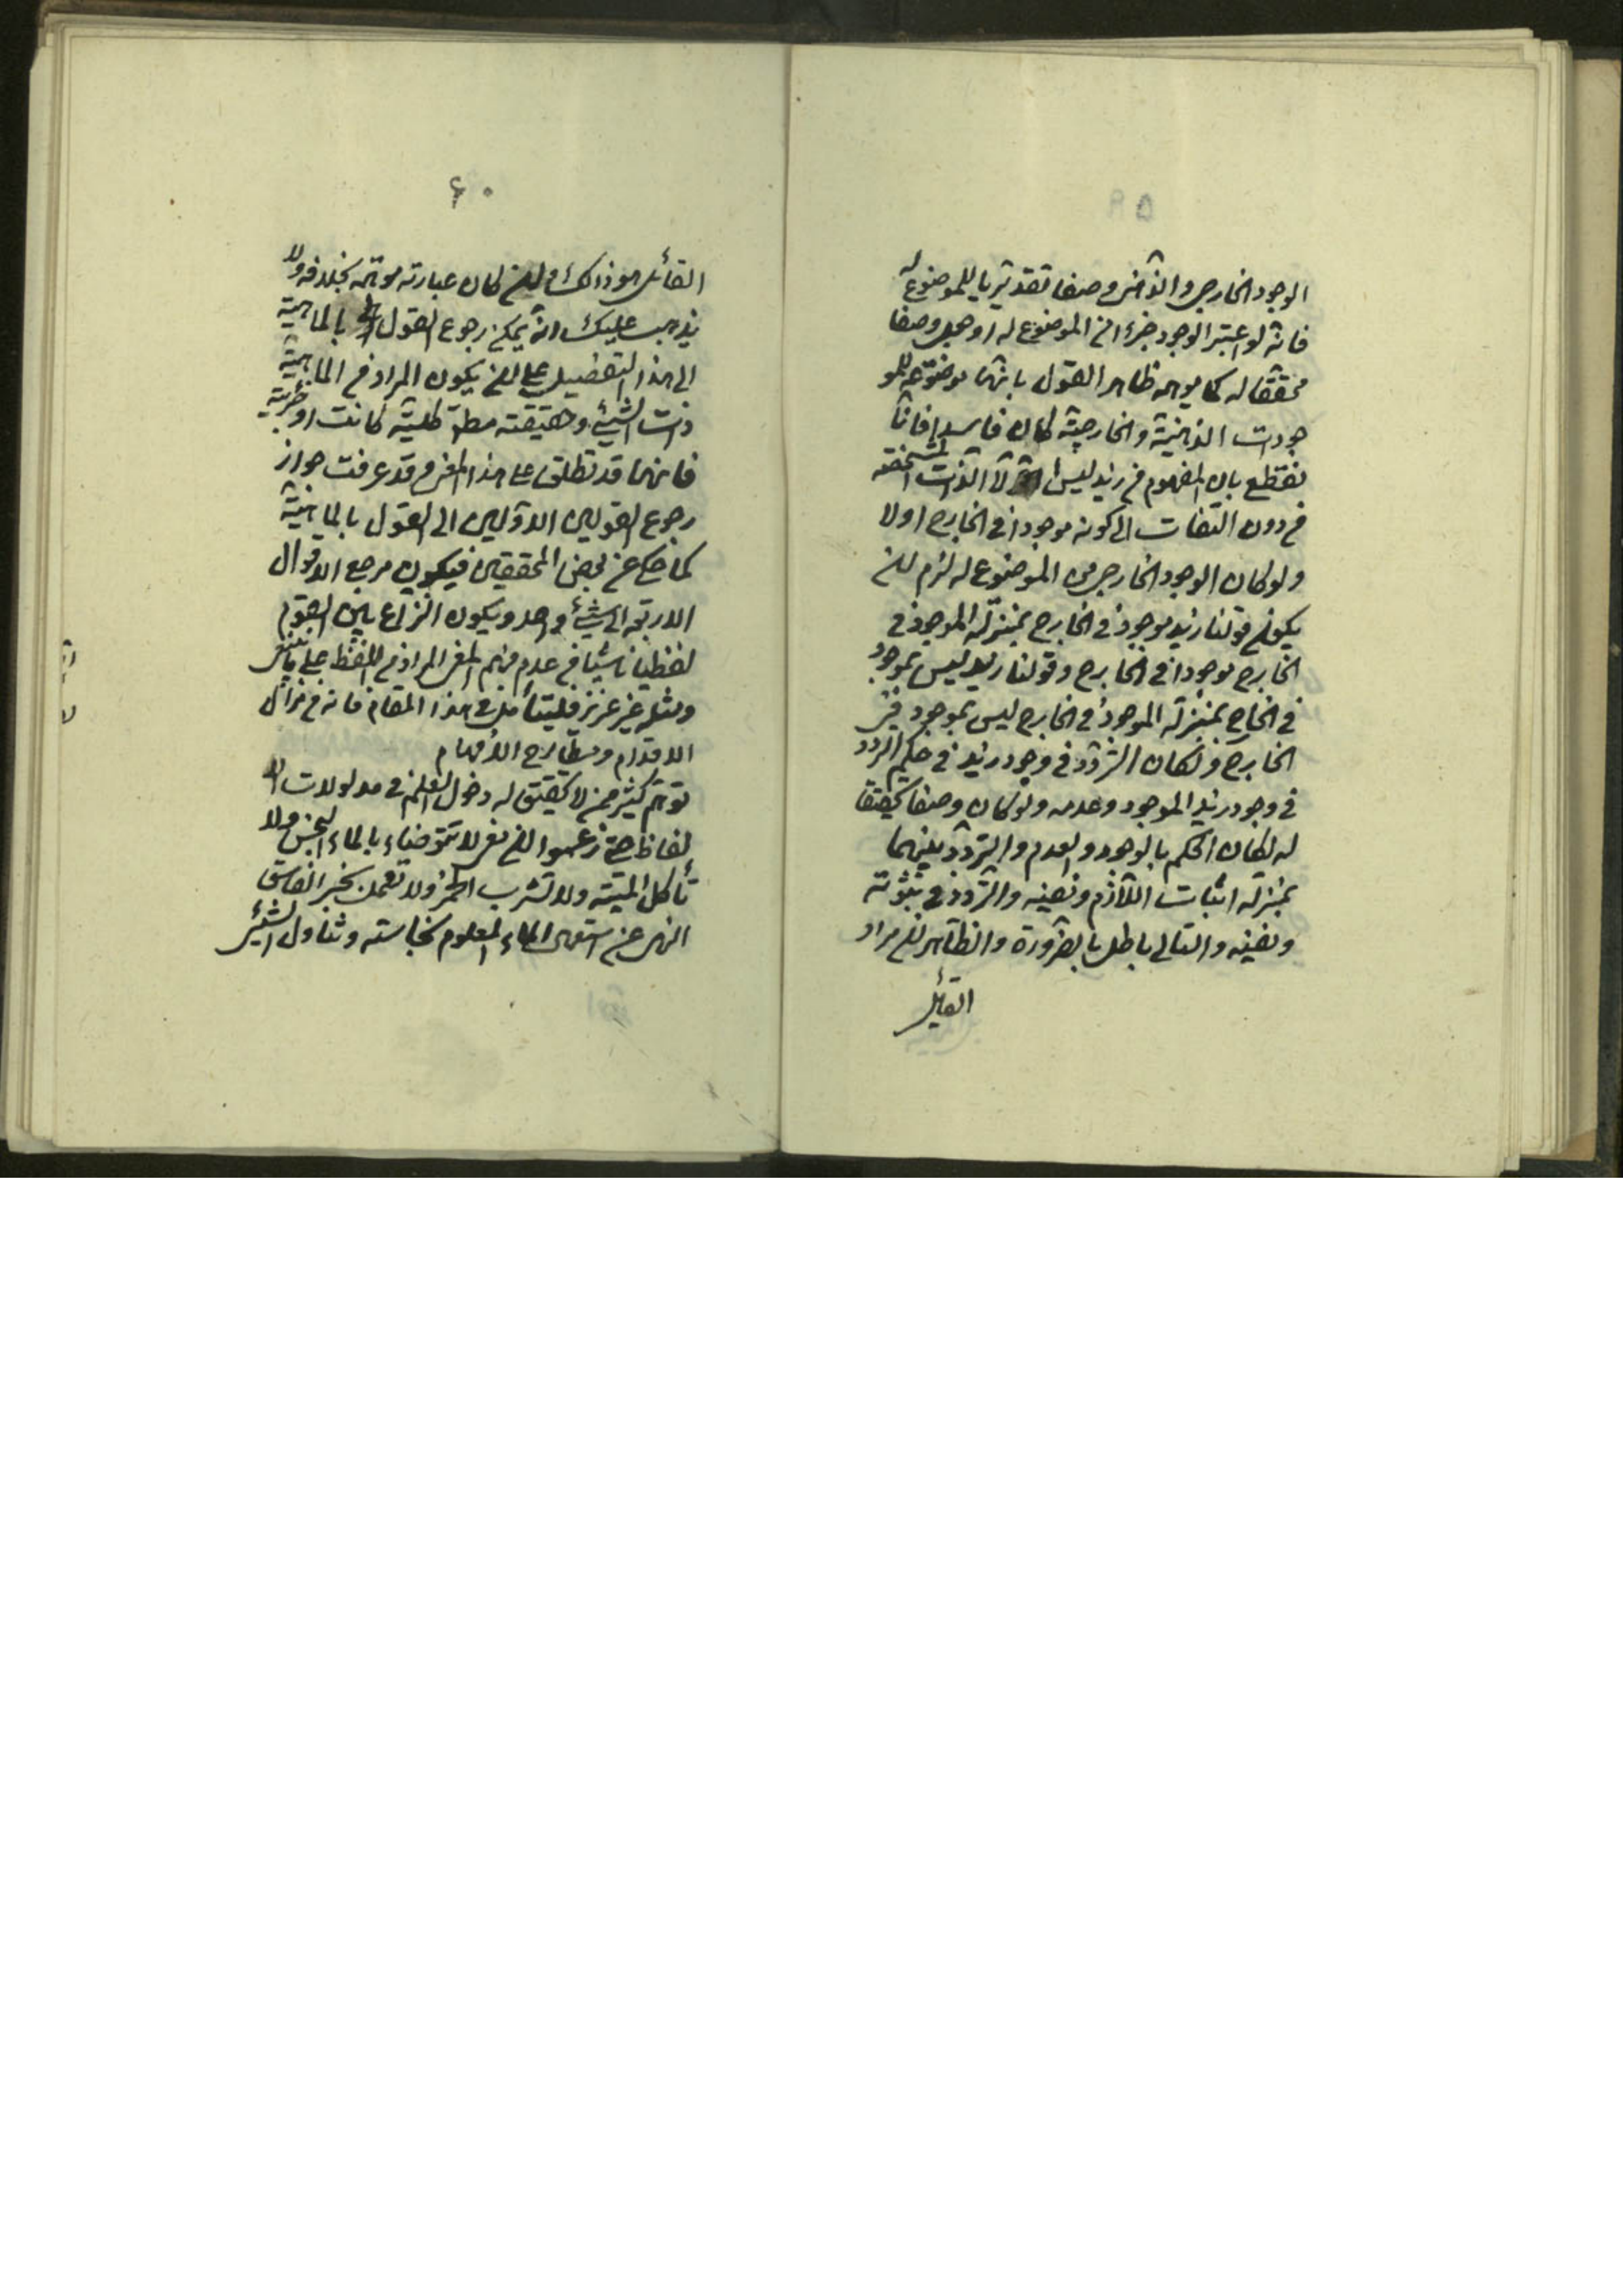 ٥٩
الوجود الخارجى والذّهنى وصفا تقديريا للموضوع له
فانه لو اعتبر الوجود جزءا من الموضوع له او جعل وصفا
محققا له كما يوهمه ظاهر القول بانها موضوعه للمو
جودات الذهنية والخارجية لكان فاسدا فانا
نقطع بان المفهوم من زيد ليس الّا الذات المشخصه
من دون التفات الى كونه موجودا فى الخارج اولا
ولو كان الوجود الخارجى من الموضوع له لزم ان
يكون قولنا زيد موجود فى الخارج بمنزلة الموجود فى
الخارج موجود فى الخارج وقولنا زيد ليس بموجود
فى الخارج بمنزلة الموجود فى الخارج ليس بموجود فى
الخارج ولكان التردّد فى وجود زيد فى حكم التردد
فى وجود زيد الموجود وعدمه ولو كان وصفا محققا
له لكان الحكم بالوجود والعدم والتردّد بينهما
بمنزلة اثبات اللّازم ونفيه والتردد فى ثبوته
ونفيه والتالى باطل بالضّرورة والظّاهر ان مراد
القائل
٦٠
القائل هو ذلك وان كان عبارته موهمه بخلافه ولا
يذهب عليك انه يمكن رجوع القول بالماهية
الى هذا التفصيل على ان يكون المراد من الماهية
ذات الشئ وحقيقته مطلقا كلية كانت او جزئية
فانهما قد تطلق على هذا المعنى وقد عرفت جواز
رجوع القولين الاولين الى القول بالماهية
كما حكى عن بعض المحققين فيكون مرجع الاقوال
الاربعة الى شئ واحد ويكون النزاع بين القوم
لفظيا ناشئا من عدم فهم المعنى المراد من اللفظ على ما ينبغى
ومثله غير عزيز فليتأمل فى هذا المقام فانه من مزال
الاقدام ومطارح الأفهام
توهم كثير ممن لا تحقيق له دخول العلم فى مدلولات الا
لفاظ حتى زعموا ان معنى لا تتوضاء بالماء النجس ولا
تأكل الميتة ولا تشرب الخمر ولا تعمل بخبر الفاسق
النهى عن استعمال الماء المعلوم نجاسته وتناول الشئ